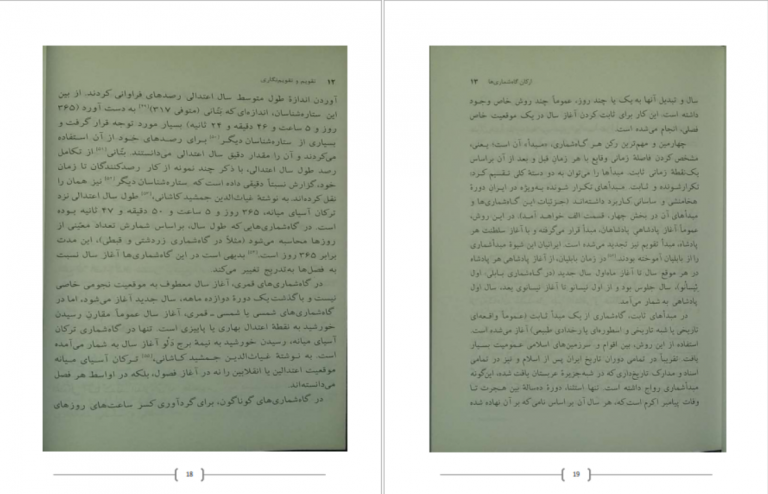 ۱۲ تقویم و تقویم‌نگاری
آوردن اندازهٔ طول متوسط سال اعتدالی رصدهای فراوانی کردند. از بین
این ستاره‌شناسان، اندازه‌ای که بتّانی (متوفی ۳۱۷) به دست آورد (۳۶۵
روز و ۵ ساعت و ۴۶ دقیقه و ۲۴ ثانیه) بسیار مورد توجه قرار گرفت و
بسیاری از ستاره‌شناسان دیگر برای رصدهای خود از آن استفاده
می‌کردند و آن را مقدار دقیق سال اعتدالی می‌دانستند. بتّانی از تکامل
رصد طول سال اعتدالی، با ذکر چند نمونه از کار رصدکنندگان تا زمان
خود، گزارش نسبتاً دقیقی داده است که ستاره‌شناسان دیگر نیز همان را
نقل کرده‌اند. به نوشتهٔ غیاث‌الدین جمشید کاشانی، طول سال اعتدالی نزد
ترکان آسیای میانه، ۳۶۵ روز و ۵ ساعت و ۵۰ دقیقه و ۴۷ ثانیه بوده
است. در گاه‌شماری‌هایی که طول سال، براساس شمارش تعداد معیّنی از
روزها محاسبه می‌شود (مثلاً در گاه‌شماری زردشتی و قبطی)، این مدت
برابر ۳۶۵ روز است. بدیهی است در این گاه‌شماری‌ها آغاز سال نسبت
به فصل‌ها به‌تدریج تغییر می‌کند.
در گاه‌شماری‌های قمری، آغاز سال معطوف به موقعیت نجومی خاصی
نیست و با گذشت یک دورهٔ دوازده ماهه، سال جدید آغاز می‌شود، اما در
گاه‌شماری‌های شمسی یا شمسی ـ قمری، آغاز سال عموماً مقارن رسیدن
خورشید به نقطهٔ اعتدال بهاری یا پاییزی است. تنها در گاه‌شماری ترکان
آسیای میانه، رسیدن خورشید به نیمهٔ برج دَلْو آغاز سال به شمار می‌آمده
است. به نوشتهٔ غیاث‌الدین جمشید کاشانی، ترکان آسیای میانه
موقعیت اعتدالین یا انقلابین را نه در آغاز فصول، بلکه در اواسط هر فصل
می‌دانسته‌اند.
در گاه‌شماری‌های گوناگون، برای گردآوری کسر ساعت‌های روزهای
18
ارکان گاه‌شماری‌ها ۱۳
سال و تبدیل آنها به یک یا چند روز، عموماً چند روش خاص وجود
داشته است. این کار برای ثابت کردن آغاز سال در یک موقعیت خاص
فصلی، انجام می‌شده است.
چهارمین و مهم‌ترین رکن هر گاه‌شماری، «مبدأ» آن است؛ یعنی،
مشخص کردن فاصلهٔ زمانی وقایع با هر زمان قبل و بعد از آن براساس
یک نقطهٔ زمانی ثابت. مبدأها را می‌توان به دو دستهٔ کلی تقسیم کرد:
تکرارشونده و ثابت. مبدأهای تکرار شونده به‌ویژه در ایران دورهٔ
هخامنشی و ساسانی کاربرد داشته‌اند (جزئیات این گاه‌شماری‌ها و
مبدأهای آن در بخش چهار، قسمت الف خواهد آمد). در این روش،
عموماً آغاز پادشاهی پادشاهان، مبدأ قرار می‌گرفته و با آغاز سلطنت هر
پادشاه، مبدأ تقویم نیز تجدید می‌شده است. ایرانیان این شیوهٔ مبدأشماری
را از بابلیان آموخته بودند. در زمان بابلیان، از آغاز پادشاهی هر پادشاه
در هر موقع سال تا آغاز ماه اول سال جدید (در گاه‌شماری بابلی، اول
نیسانو)، سال جلوس بود و از اول نیسانو تا آغاز نیسانوی بعد، سال اول
پادشاهی به شمار می‌آمد.
در مبدأهای ثابت، گاه‌شماری از یک مبدأ ثابت (عموماً واقعه‌ای
تاریخی یا شبه تاریخی و اسطوره‌ای یا رخدادی طبیعی) آغاز می‌شده است.
استفاده از این روش، بین اقوام و سرزمین‌های اسلامی عمومیت بسیار
یافت. تقریباً در تمامی دوران تاریخ ایران پس از اسلام و نیز در تمامی
اسناد و مدارک تاریخ‌داری که در شبه جزیرهٔ عربستان یافت شده، این‌گونه
مبدأشماری رواج داشته است. تنها استثنا، دورهٔ ده‌سالهٔ بین هجرت تا
وفات پیامبر اکرم است که، هر سال آن براساس نامی که بر آن نهاده شده
19